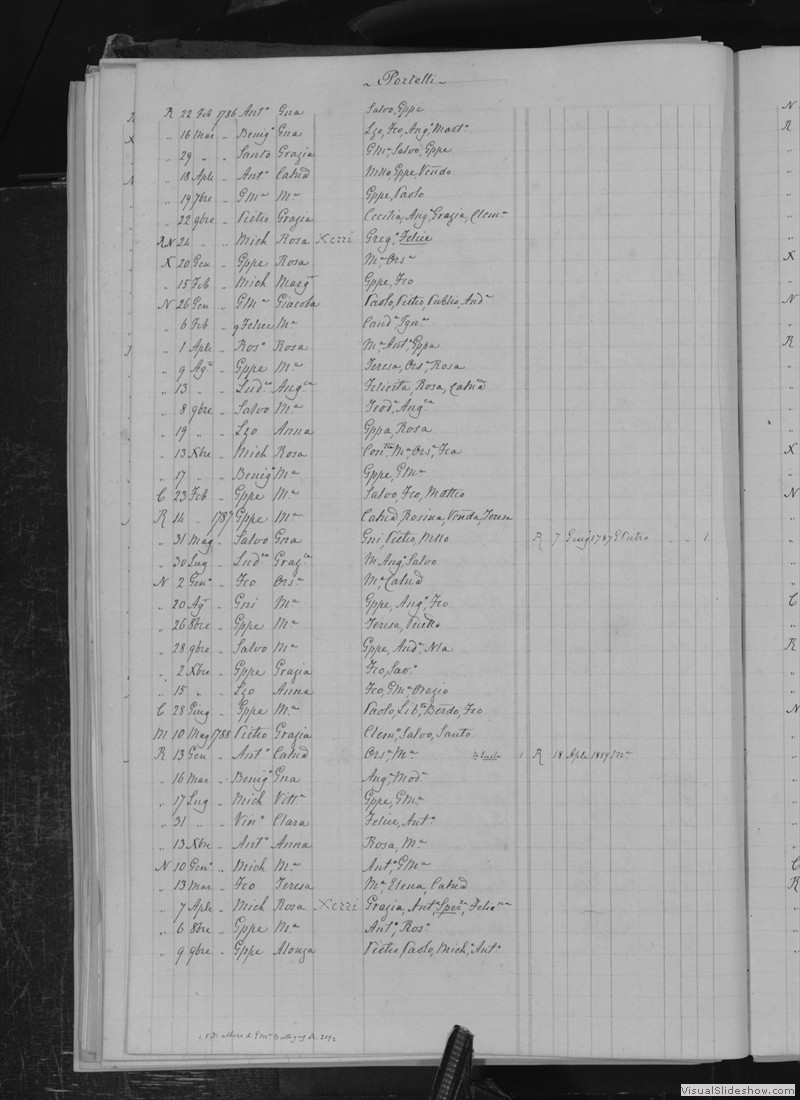 Portelli
R 22 Feb 1786 Ant.a Gna Salvo, Gppe
„ 16 Mar „ Benig.o Gna Lzo, Fco, Ang.o Mart.a
„ 29 „ „ Santo Grazia GM.a Salvo, Gppe
„ 18 Aple „ Ant.o Catnd Mllo, Gppe, Vendo
„ 19 7bre „ GM.a M.a Gppe, Paolo
„ 22 9bre „ Pietro Grazia Cecilia, Ang.o, Grazia, Clem.a
RN 24 „ „ Mich Rosa Xerri Greg.o, Felice
X 20 Gen „ Gppe Rosa M.a, Ors.a
„ 15 Feb „ Mich Marg.t Gppe, Fco
N 26 Gen „ GM.a Giacoba Paolo, Pietro, Publio, And.a
„ 6 Feb „ Felice M.a Cand.a Ign.a
„ 1 Aple „ Ros.o Rosa M.a, Ant.a, Gppa
„ 9 Ag.o „ Gppe M.a Teresa, Ors.a, Rosa
„ 13 „ „ Lud.co Aug.na Felicita, Rosa, Catnd
„ 8 9bre „ Salvo M.a Teod.a, Ang.ca
„ 19 „ „ Lzo Anna Gppa, Rosa
„ 13 Xbre „ Mich Rosa Con.tta M.a, Ors.a, Fca
„ 17 „ „ Benig.o M.a Gppe, GM.a
C 23 Feb „ Gppe M.a Salvo, Fco, Matteo
R 14 „ 1787 Gppe M.a Catnd, Rosina, Venda, Teresa
„ 31 Mag „ Salvo Gna Gni Pietro, Mllo R 7 Giug 1787 G Pietro „ „ 1
„ 30 Lug „ Lud.co Graz.la M. Ang.o Salvo
N 2 Gen.o „ Fco Ors.a M.a, Catnd
„ 20 Ag.t „ Gni M.a Gppe, Ang.o, Fco
„ 26 8bre „ Gppe M.a Teresa, Pietro
„ 28 9bre „ Salvo M.a Gppe, And.a, Nla
„ 2 Xbre „ Gppe Grazia Fco, Sav.o
„ 15 „ „ Lzo Anna Fco, GM.a Orazio
C 28 Giug „ Gppe M.a Paolo, Lib.ta, Berdo, Fco
M 10 Mag 1788 Pietro Grazia Clem.a, Salvo, Santo
R 13 Gen „ Ant.o Catnd Ors.a, M.a 1 R 18 Aple 1859 M.a
„ 16 Mar „ Benig.o Gna Ang.a, Mod.a
„ 17 Lug „ Mich Vitt.a Gppe, GM.a
„ 31 „ „ Vin.o Clara Felice, Ant.a
„ 13 Xbre „ Ant.o Anna Rosa, M.a
N 10 Gen.o „ Mich M.a Ant.o, GM.a
„ 13 Mar „ Fco Teresa M.a, Elena, Catnd
„ 7 Aple „ Mich Rosa Xerri Grazia, Ant.a, Sper.za, Felic.na
„ 6 8bre „ Gppe M.a Ant.o, Ros.o
„ 9 9bre „ Gppe Alonza Pietro, Paolo, Mich.e, Ant.a
VisualSlideshow.com